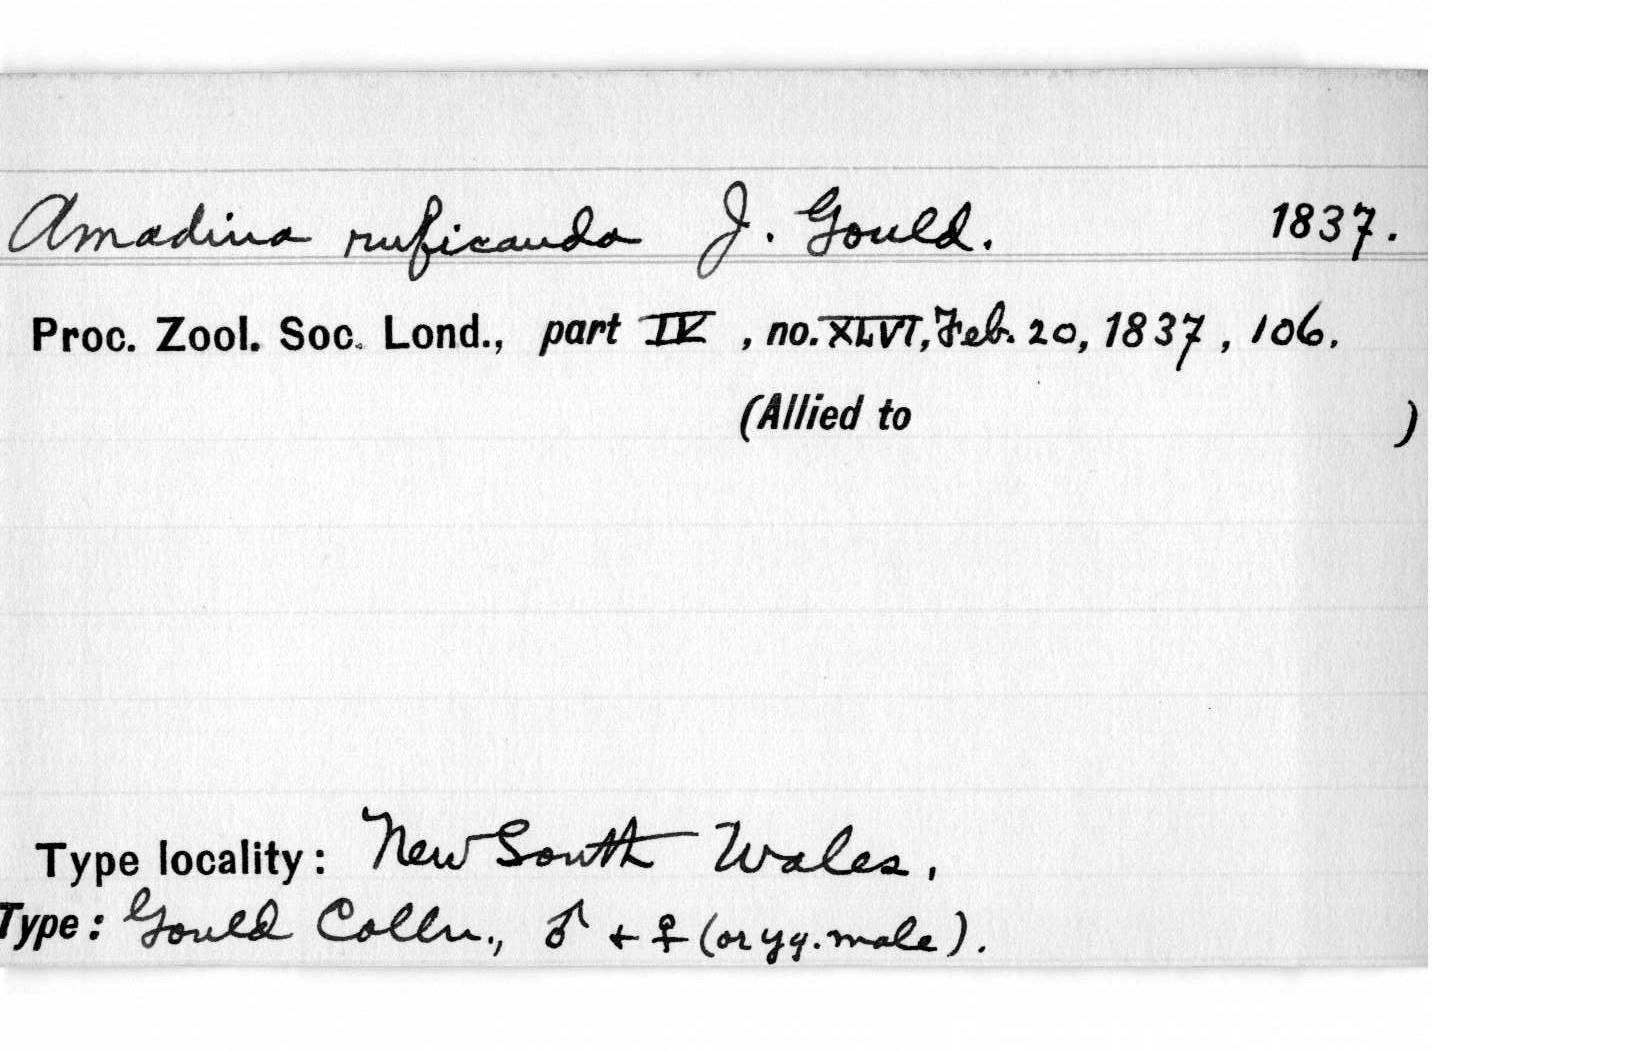 Amadina ruficauda J. Gould. 1837.
Proc. Zool. Soc. Lond., part IV, no. XLVI, Feb. 20, 1837, 106.
(Allied to )
Type locality: New South Wales,
Type: Gould Colln., ♂ + ♀ (or yg. male).